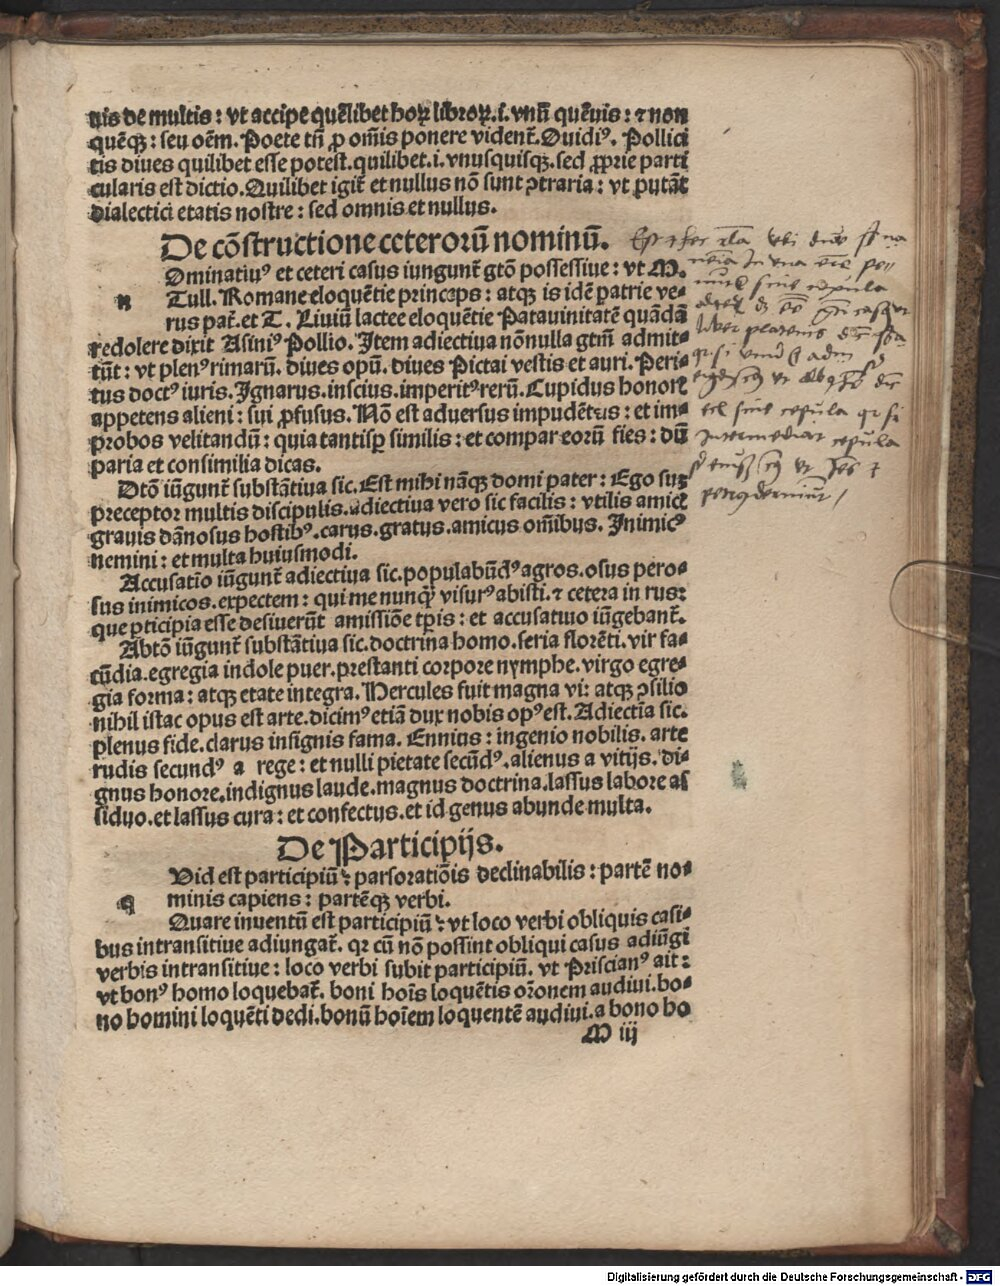 uis de multis : vt accipe quēlibet hoꝝ libroꝝ.i.vnū quēuis : ⁊ non
quēqꝫ : seu oēm. Poete tñ ꝓ om̄is ponere vident̄. Ouidiꝰ. Pollici
tis diues quilibet esse potest.quilibet.i.vnusquisqꝫ.sed ꝓprie parti
cularis est dictio.Quilibet igit̄ et nullus nō sunt ꝯtraria : vt putāt
dialectici etatis nostre : sed omnis et nullus.
De cōstructione ceterorū nominū.
n Ominatiuꝰ et ceteri casus iungunt̄ gtō possessiue : vt M.
Tull.Romane eloquētie princeps : atqꝫ is idē patrie ve-
rus pat̄.et T. Liuiū lactee eloquētie Patauinitatē quādā
redolere dixit Asiniꝰ Pollio. Item adiectiua nōnulla gtm̄ admit-
tūt : vt plenꝰ rimarū. diues opū. diues Pictai vestis et auri. Peri-
tus doctꝰ iuris. Ignarus. inscius. imperitꝰ rerū. Cupidus honoris
appetens alieni : sui ꝓfusus. Nō est aduersus impudētes : et im-
probos velitandū : quia tantisꝑ similis : et compar eorū fies : dū
paria et consimilia dicas.
Dtō iūgunt̄ substātiua sic. Est mihi nāqꝫ domi pater : Ego suꝫ
preceptor multis discipulis.adiectiua vero sic facilis : vtilis amicis
grauis dānosus hostibꝰ.carus.gratus.amicus om̄ibus. Inimicꝰ
nemini : et multa huiusmodi.
Accusatīo iūgunt̄ adiectiua sic.populabūdꝰ agros.osus pero-
sus inimicos.expectem : qui me nunqꝫ̄ visurꝰ abisti.⁊ cetera in rus:
que ꝑticipia esse desiuerūt amissiōe tꝑis : et accusatiuo iūgebant̄.
Abtō iūgunt̄ substātiua sic.doctrina homo.seria florēti.vir fa-
cūdia.egregia indole puer.prestanti corpore nymphe.virgo egre-
gia forma : atqꝫ etate integra. Hercules fuit magna vi : atqꝫ ꝯsilio
nihil istac opus est arte.dicimꝰ etiā dux nobis opꝰ est. Adiectīa sic.
plenus fide.clarus insignis fama. Ennius : ingenio nobilis. arte
rudis secundꝰ a rege : et nulli pietate secūdꝰ.alienus a vitijs. di-
gnus honore.indignus laude.magnus doctrina.lassus labore as
siduo.et lassus cura : et confectus.et id genus abunde multa.
De Participijs.
q Vid est participiū ? pars oratiōis declinabilis : partē no-
minis capiens : partēqꝫ verbi.
Quare inuentū est participiū ? vt loco verbi obliquis casi-
bus intransitiue adiungat̄. qꝛ cū nō possint obliqui casus adiūgi
verbis intransitiue : loco verbi subit participiū. vt Priscianꝰ ait :
vt bonꝰ homo loquebat̄. boni hoīs loquētis oꝛonem audiui.bo-
no homini loquēti dedi.bonū hoīem loquentē audiui.a bono ho
M iij
Digitalisierung gefördert durch die Deutsche Forschungsgemeinschaft - DFG